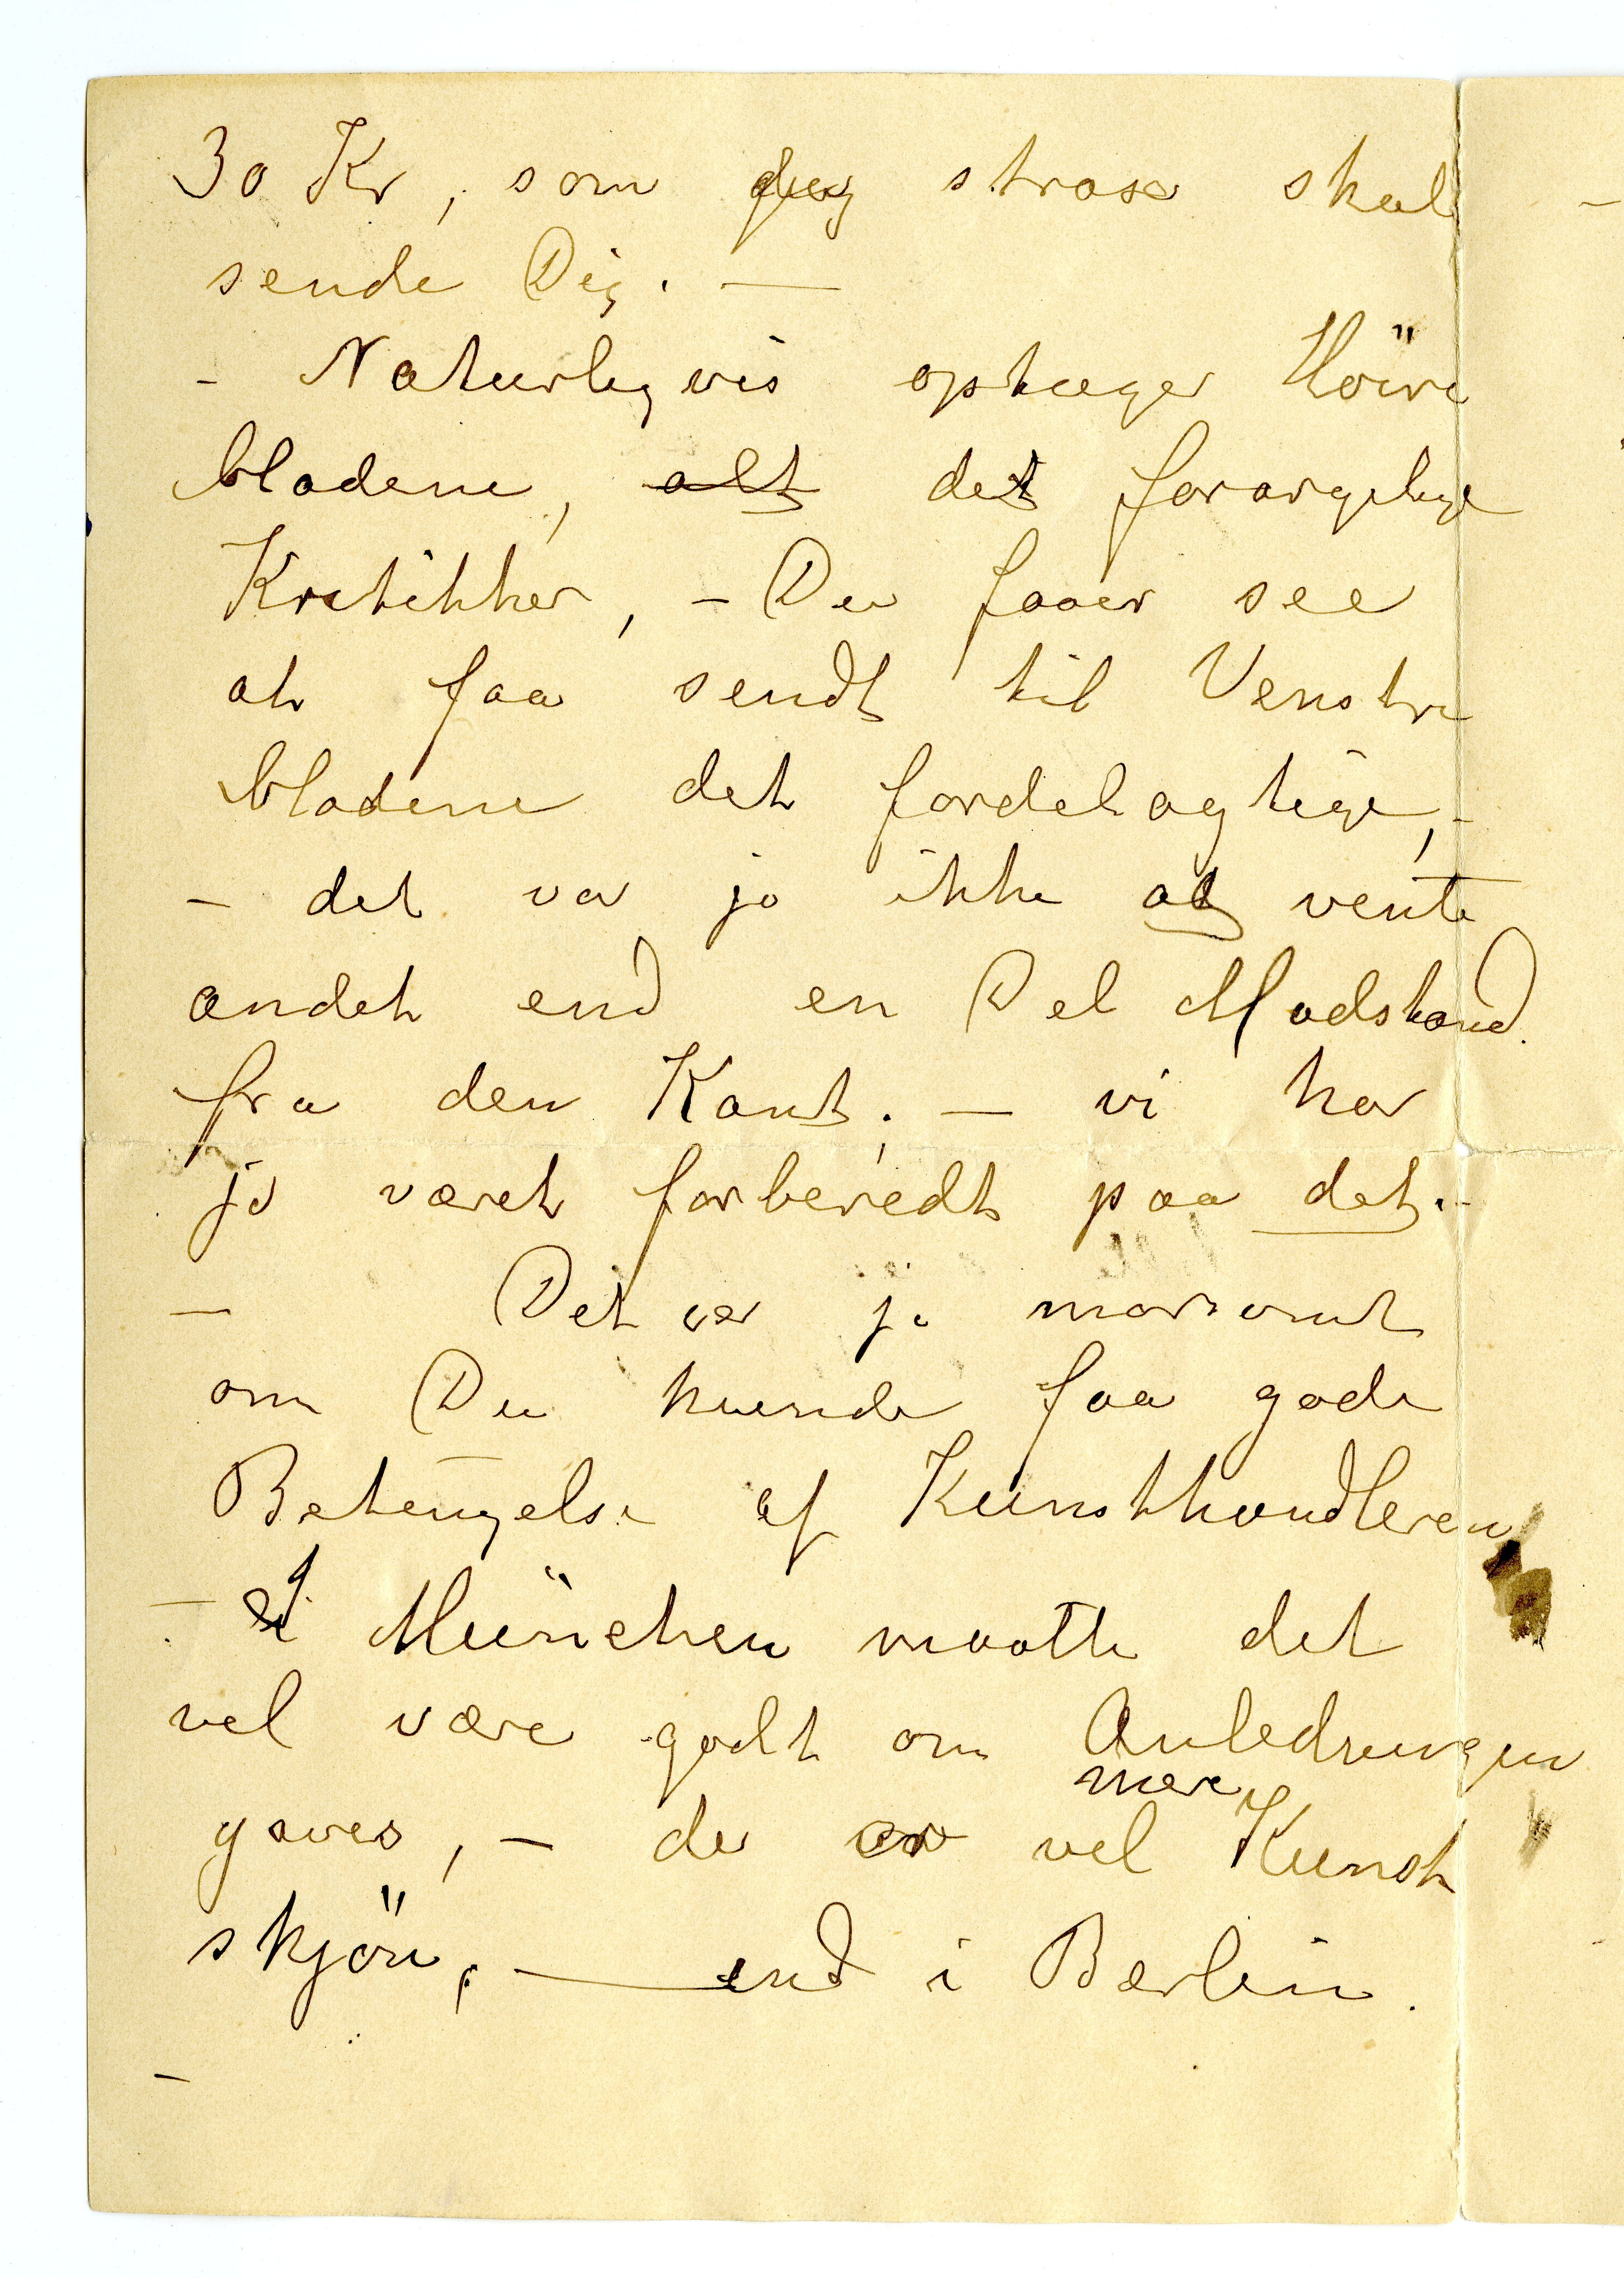 30 Kr, som jeg strax skal
sende Dig. —
- Naturligvis optager Höire
bladene, alt det forargelige
Kritikker, - Du faaer see
at faa sendt til Venstre
bladene det fordelagtige, -
- det var jo ikke at vente
andet end en Del Modstand.
fra den Kant; — vi har
jo været forberedt paa det. -
— Det var jo morsomt
om Du kunde faa gode
Betingelse af Kunsthandleren
- I München maatte det
vel være godt om Anledningen
mere
gaves, - de er vel Kunst
skjön, — end i Berlin.
-